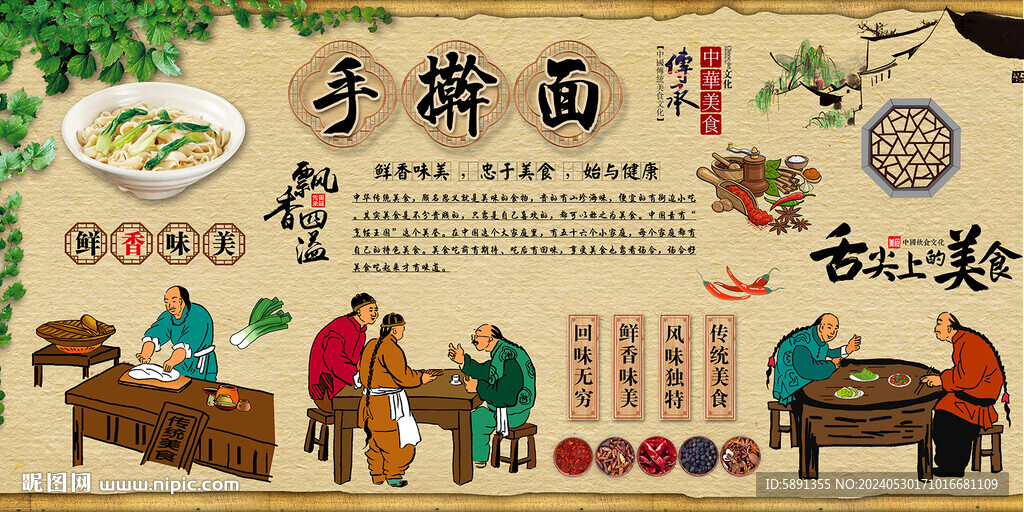 手擀面
【中國傳統美食文化】
傳承
中華美食
文化
飘香四溢
鲜香味美，忠于美食，始与健康
中华传统美食，顾名思义就是美味的食物，贵的有山珍海味，便宜的有街边小吃
。其实美食是不分贵贱的，只需是自己喜欢的，都可以称之为美食。中国素有“
烹饪王国”这个美誉。在中国这个大家庭里，有五十六个小家庭，每个家庭都有
自己的特色美食。美食吃前有期待、吃后有回味，享受美食也需看场合，场合好
美食吃起来才有味道。
鲜香味美
舌尖上的美食
中國飲食文化
回味无穷
鲜香味美
风味独特
传统美食
传统美食
昵图网 www.nipic.com
ID:5891355 NO:20240530171016681109